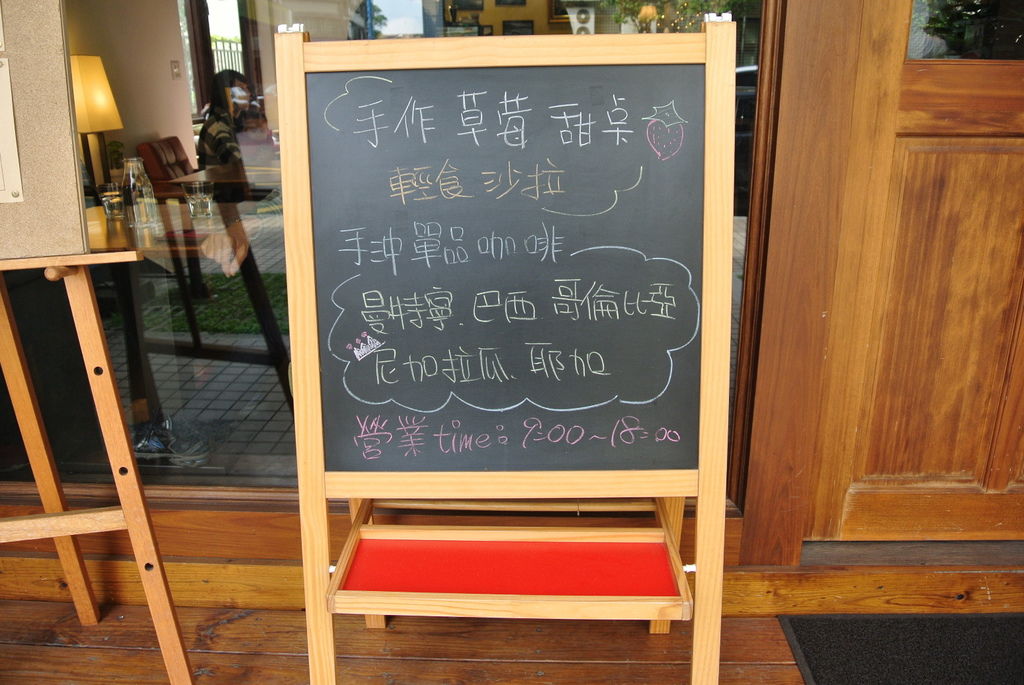 手作 草莓 甜桌
輕食 沙拉
手沖 單品 咖啡
曼特寧. 巴西 哥倫比亞
尼加拉瓜. 耶加
營業 time: 9:00~18:00